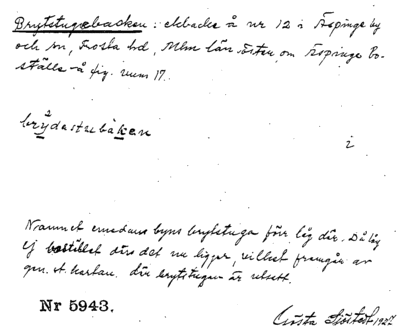 Brytstugebacken: ekbacke å nr 12 i Äspinge by
och sn, Frosta hd, Mlm. län öster om Äspinge Bo-
ställe å fig. num 17.
brydastuebåken
i
Namnet emedan byns brytstuga förr låg där. Då låg
ej bostället där det nu ligger, vilket framgår av
gen. st. kartan där brytstugan är utsatt.
Nr 5943.
Gösta Sjöstedt 1927